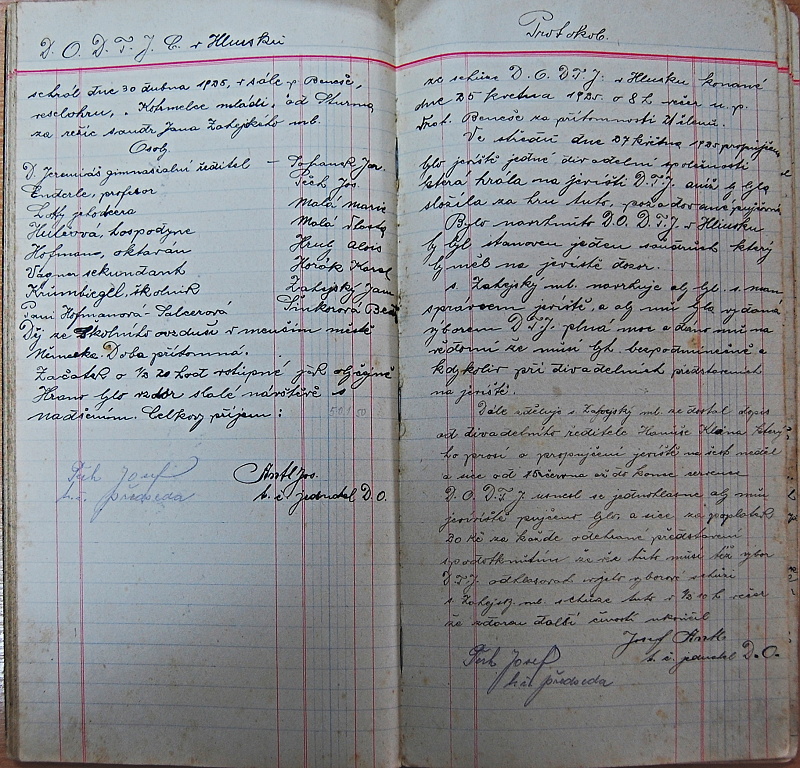 D. O. D. T. J. Č. v Hlinsku
sehrál dne 30 dubna 1925, v sále p Beneše,
veselohru, „Kotrmelce mládí, od Šturma
za režie soudr Jana Zahejského ml.
Osoby
D. Jeremiáš gimnasialní ředitel — Sopoušek Jar.
Enderle, profesor Pech Jos.
Loty jeho dcera Malá Marie
Hullerová, hospodyne Malá Vlasta
Hofmano, oktaván Hrub Alois
Vagna sekundant Horák Karel
Krimbiegel, školnik Zahejský Jan
Paní Hofmanová - Salcerová Šinkorová Bož
Děj ze školního ovzduší v menším městě
Německa. Doba přítomná.
Začátek o ½ 20 hod vstupné jak obyčejně
Hráno bylo vzdor slabé návštěvě s
nadšením. Celkový příjem: 501 50
Pech Josef
t. č. předseda
Antl Jos.
t. č. jednatel D. O.
Protokol.
ze schůze D. O. D.T.J. v Hlinsku konané
dne 25 května 1925 o 8 h. večer u. p.
Prot. Beneše za přítomnosti členů.
Ve středu dne 27 května 1925 propůjčeno
bylo jeviště jedné divadelní společnosti
která hrála na jevišti D.T.J. aniž by byla
složila za hru tuto, požadované
Bylo navrhnuto D.O. D.T.J. v Hlinsku
by byl stanoven jeden soudruh který
by měl na jeviště dozor.
s. Zahejský ml. navrhuje aby byl. s.
správcem jeviště, a aby mu byla vydaná
výborem D.T.J. plná moc a dáno mu na
vědomí že musí být bezpodmínečně a
kdykoliv při divadelních představeních
na jevišti.
Dále sděluje s. Zahejský ml. že dostal dopis
od divadelního ředitele Hanuše Klána který
ho prosí o propůjčení jeviště na šest neděl
a sice od 15 června až do konce července
D. O. D.T.J usnesl se jednohlasně aby mu
jeviště pujčeno bylo a sice za poplatek
20 Kč za každé odehrané představení
spodotknutím že že tuto musí též výbor
D.T.J. odhlasovati výborové schůzi
s. Zahejsk. ml. schůze tuto v ½ 10 h večer
se zdarem další činosti ukončil
Josef Antl
t. č. jednatel D. O.
Pech Josef
t. č. předseda